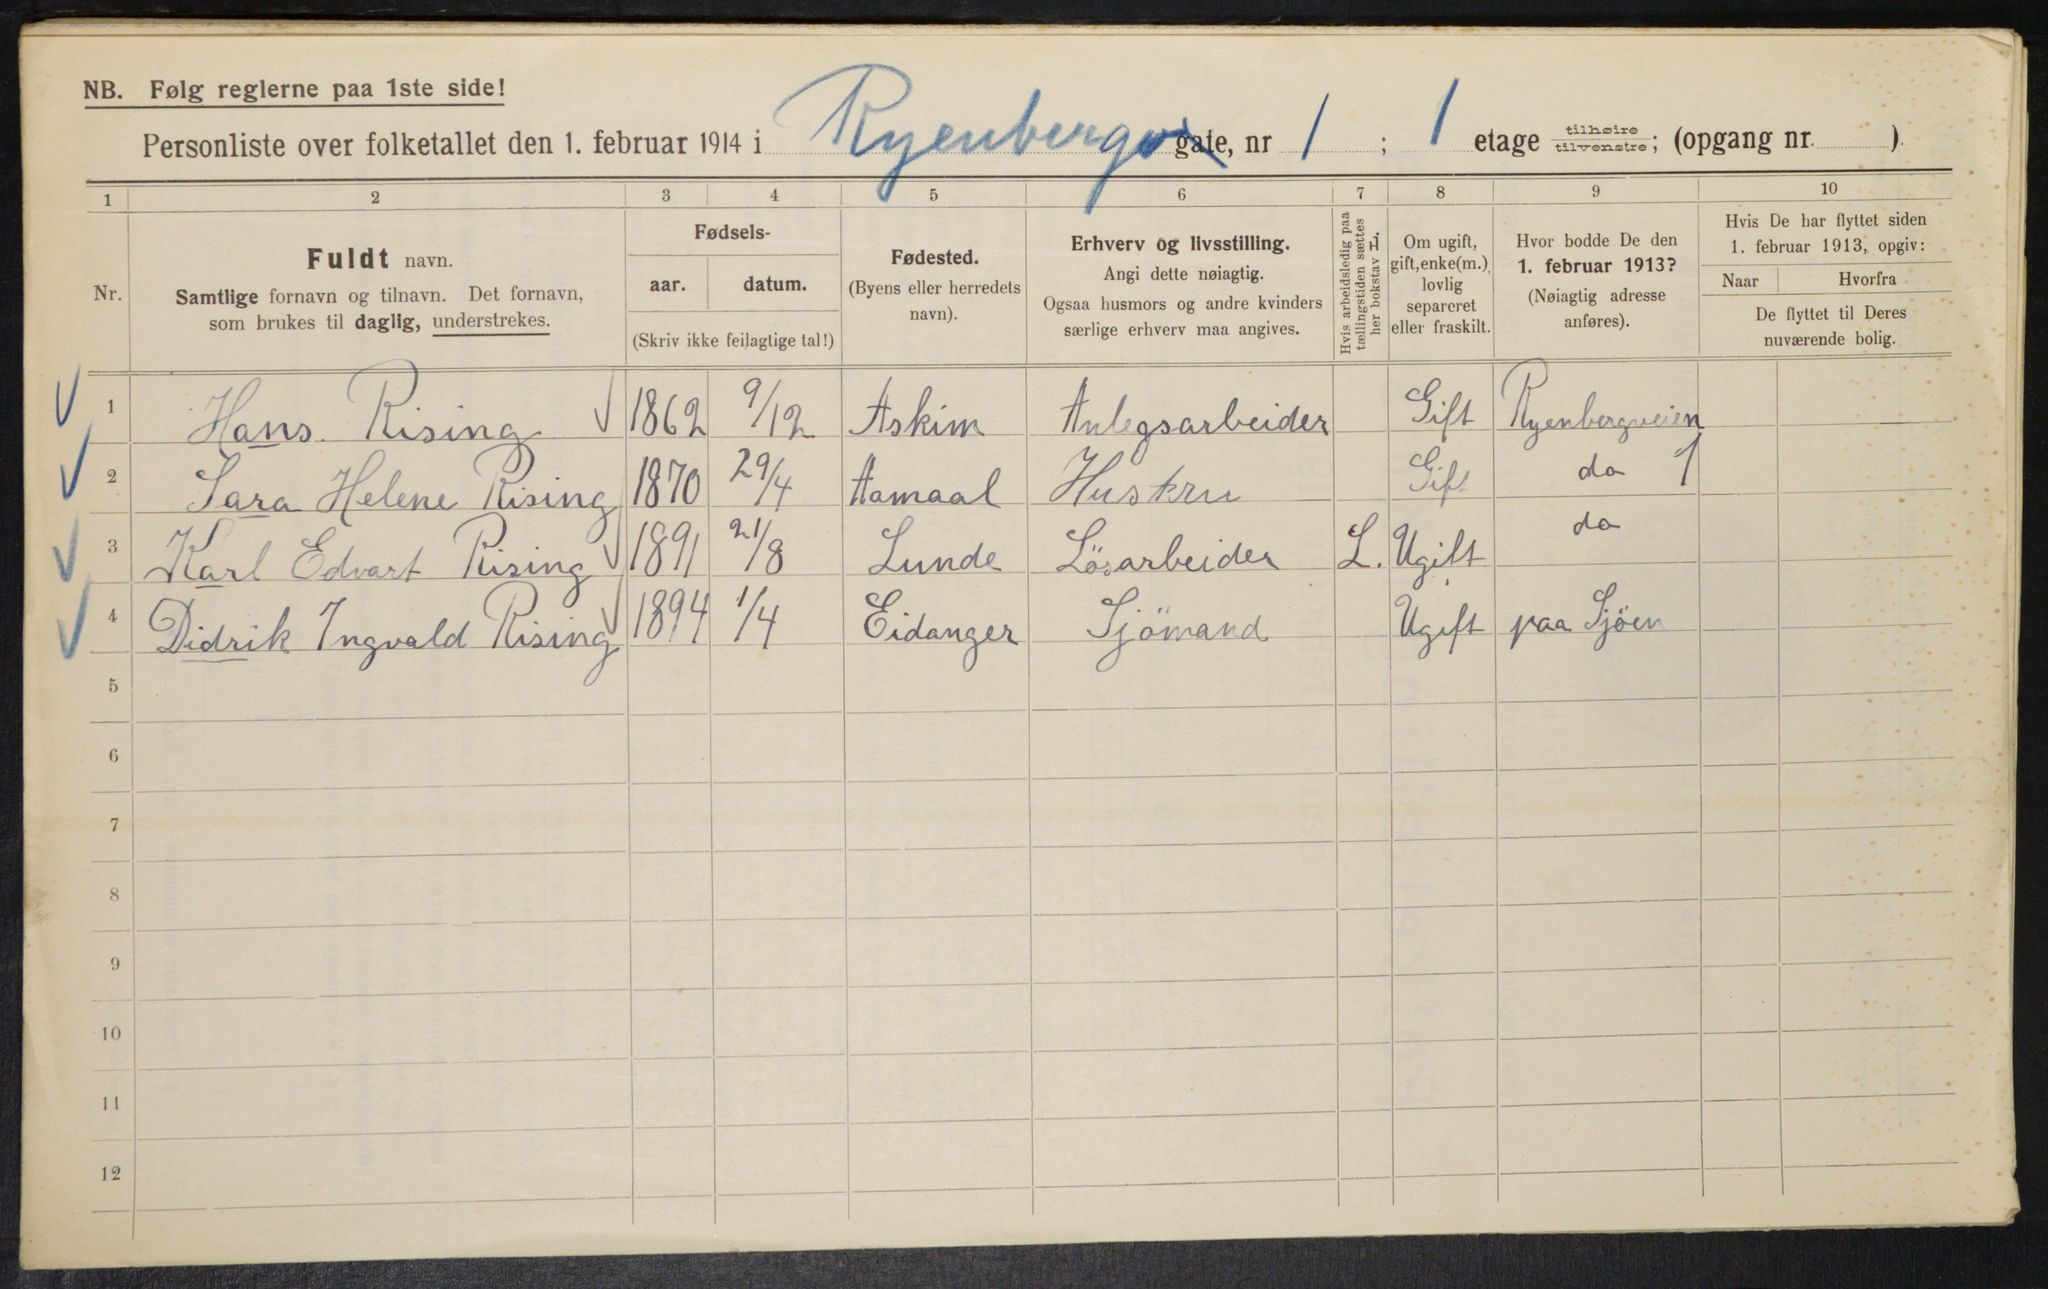 NB. Følg reglerne paa 1ste side!
Personliste over folketallet den 1. februar 1914 i Ryenbergv gate, nr 1 ; 1 etage tilhøire tilvenstre; (opgang nr. ).
1 2 3 4 5 6 7 8 9 10
Nr.
Fuldt navn.
Samtlige fornavn og tilnavn. Det fornavn,
som brukes til daglig, understrekes.
Fødsels-
aar. datum.
(Skriv ikke feilagtige tal!)
Fødested.
(Byens eller herredets
navn).
Erhverv og livsstilling.
Angi dette nøiagtig.
Ogsaa husmors og andre kvinders
særlige erhverv maa angives.
Hvis arbeidsledig paa
tællingstiden sættes
her bokstav L.
Om ugift,
gift, enke(m.),
lovlig
separeret
eller fraskilt.
Hvor bodde De den
1. februar 1913?
(Nøiagtig adresse
anføres).
Hvis De har flyttet siden
1. februar 1913, opgiv:
Naar Hvorfra
De flyttet til Deres
nuværende bolig.
1 Hans. Rising 1862 9/12 Askim Anlegsarbeider Gift Ryenbergveien 1
2 Sara Helene Rising 1870 29/4 Aamaal Hustru Gift do
3 Karl Edvart Rising 1891 21/8 Lunde Lösarbeider L. Ugift do
4 Didrik Ingvald Rising 1894 1/4 Eidanger Sjömand Ugift paa Sjöen
5
6
7
8
9
10
11
12